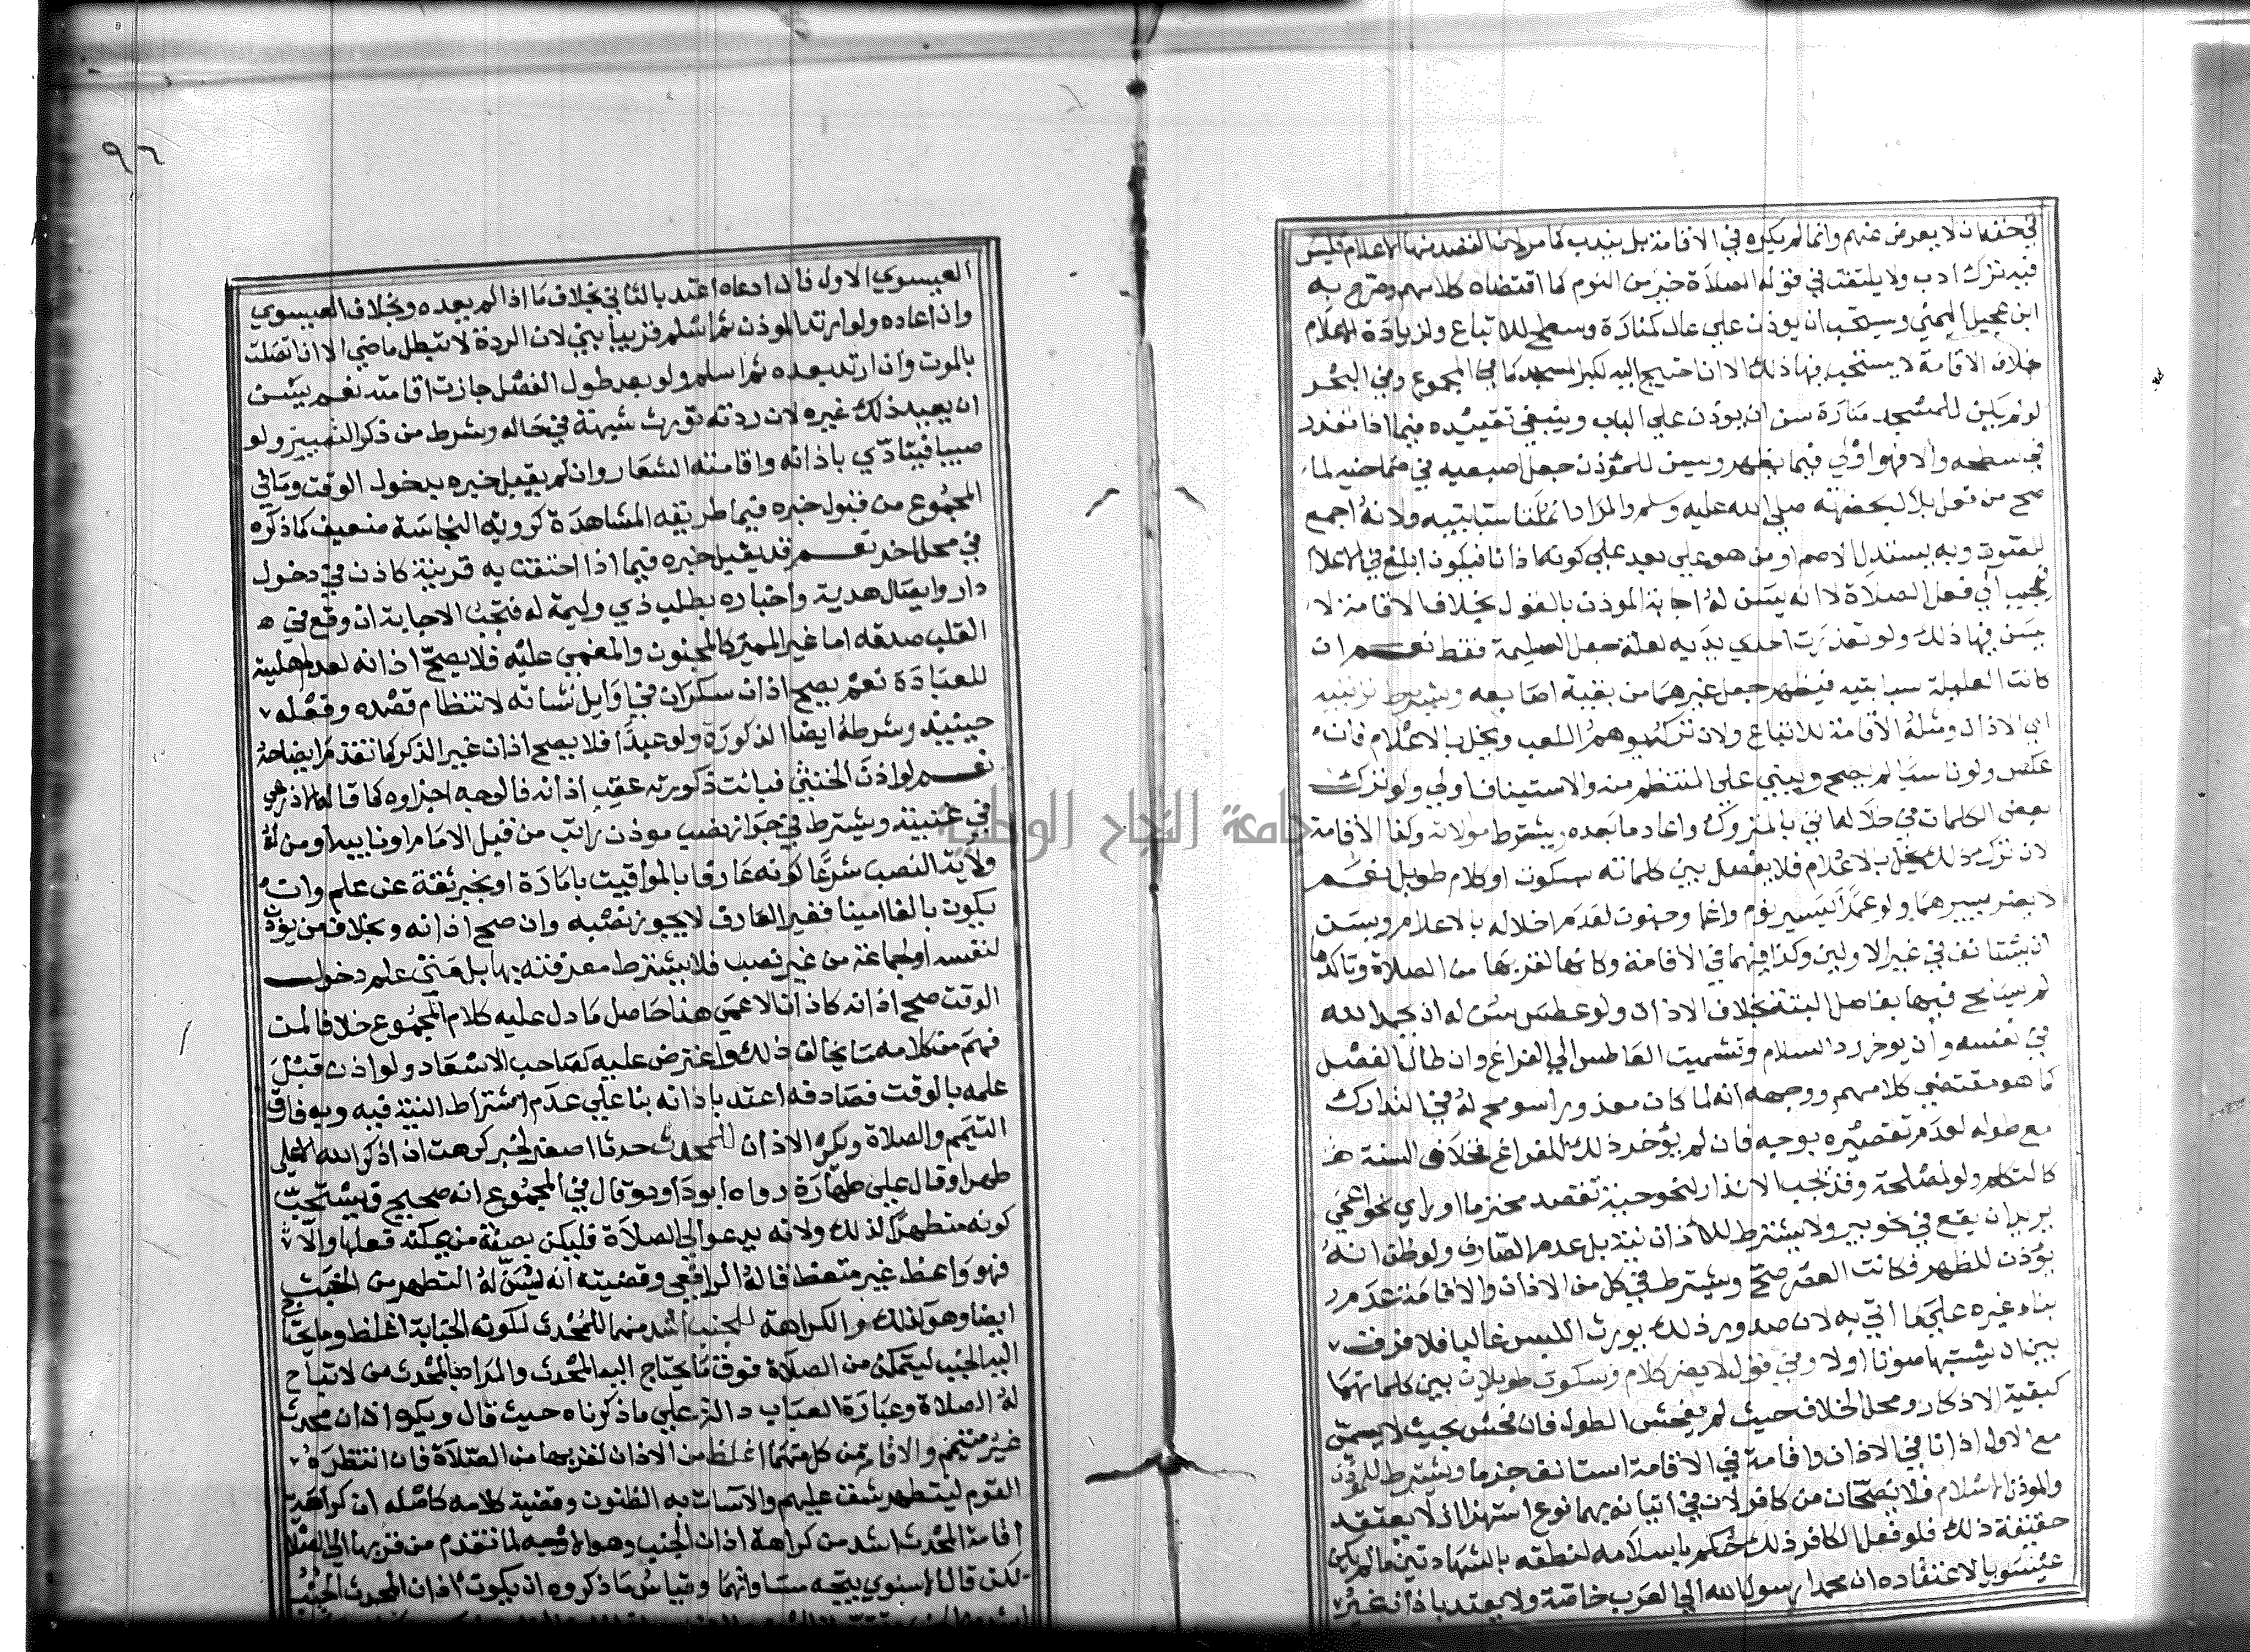 في حقهما ان لا يعرض عنهم وانما لم يكره في الاقامة بل يندب كما مر لان القصد منها الاعلام فليس
فيه ترك ادب ولا يلتفت في قوله الصلاة خير من النوم كما اقتضاه كلامهم وصرح به
ابن عجيل اليمني ويستحب ان يوذن علي عال كمنارة وسطح للاتباع ولزيادة الاعلام
خلاف الاقامة لا يستحب فيها ذلك الا ان احتيج اليه لكبر المسجد كما في المجموع وفي البحر
لو لم يكن للمسجد منارة سن ان يوذن علي الباب وينبغي تقييده فيما اذا تعذر
في سطحه والا فهو اولي فيما يظهر ويسن للموذن جعل اصبعيه في صماخيه لما
صح من فعل بلال بحضرته صلي الله عليه وسلم والمراد انملتا سبابتيه ولانه اجمع
للصوت وبه يستدل الاصم او من هو علي بعد علي كونه اذانا فيكون ابلغ في الاعلام
فيجيب الي فعل الصلاة لا انه يسن له اجابة الموذن بالقول بخلاف الاقامة لا
يسن فيها ذلك ولو تعذرت احدي يديه لعلة جعل السليمة فقط نعم ان
كانت العليلة سبابتيه فيظهر جعل غيرهما من بقية اصابعه ويشترط ترتيبه
اي الاذان ومثله الاقامة للاتباع ولان تركه يوهم اللعب ويخل بالاعلام فان
عكس ولو ناسيا لم يصح ويبني علي المنتظم منه والاستيناف اولي ولو ترك
بعض الكلمات في خلالها اتي بالمتروك واعاد ما بعده ويشترط موالاته وكذا الاقامة
لان ترك ذلك يخل بالاعلام فلا يفصل بين كلماته بسكوت او كلام طويل نعم
لا يضر يسيرهما ولو عمدا كيسير نوم واغما وجنون لعدم اخلاله بالاعلام ويسن
ان يستانف في غير الاولين وكذا فيهما في الاقامة وكانها لقربها من الصلاة وتاكدها
لم يسامح فيها بفاصل البتة بخلاف الاذان ولو عطس سن له ان يحمد الله
في نفسه وان يوخر رد السلام وتشميت العاطس الي الفراغ وان طال الفصل
كما هو مقتضي كلامهم ووجهه انه لما كان معذورا سومح له في التدارك
مع طوله لعدم تقصيره بوجه فان لم يؤخر ذلك للفراغ فخلاف السنة
كالتكلم ولو لمصلحة وقد يجب الانذار لنحو حية تقصد محترما او راي نحو اعمي
يريد ان يقع في نحو بير ولا يشترط للاذان نية بل عدم الصارف ولو ظن انه
يؤذن للظهر فكانت العصر صح ويشترط في كل من الاذان والاقامة عدم
بناء غيره علي ما اتي به لان صدور ذلك يورث اللبس غالبا فلا فرق
بين ان يشتبها صوتا اولا وفي قول لا يضر كلام وسكوت طويلان بين كلماتهما
كبقية الاذكار ومحل الخلاف حيث لم يفحش الطول فان فحش بحيث لا يسمي
مع الاول اذانا في الاذان واقامة في الاقامة استانف جزما ويشترط للموذن
والموذن الاسلام فلا يصحان من كافر لان في اتيانه بهما نوع استهزا اذ لا يعتقد
حقيقة ذلك فلو فعل الكافر ذلك حكم باسلامه لنطقه بالشهادتين ما لم يكن
عيسويا لاعتقاده ان محمدا رسول الله الي العرب خاصة ولا يعتد باذان غير
٩٦
العيسوي الاول فان ادعاه اعتد بالثاني بخلاف ما اذا لم يعده وبخلاف العيسوي
وان اعاده ولو ارتد الموذن ثم اسلم قريبا بني لان الردة لا تبطل ما مضي الا ان اتصلت
بالموت وان ارتد بعده ثم اسلم ولو بعد طول الفصل جازت اقامته نعم يسن
ان يعيد ذلك غيره لان ردته تورث شبهة في حاله وشرط من ذكر التمييز ولو
صبيا فيتادي باذانه واقامته الشعار وان لم يقبل خبره بدخول الوقت وما في
المجموع من قبول خبره فيما طريقه المشاهدة كروية النجاسة ضعيف كما ذكره
في محل اخر نعم قد يقبل خبره فيما اذا احتفت به قرينة كاذن في دخول
دار وايصال هدية واخباره بطلب ذي وليمة له فتجب الاجابة ان وقع في
القلب صدقه اما غير المميز كالمجنون والمغمي عليه فلا يصح اذانه لعدم اهليته
للعبادة نعم يصح اذان سكران في اوايل نشاته لانتظام قصده وفعله
حينيذ وشرطه ايضا الذكورة ولو عبدا فلا يصح اذان غير الذكر كما تقدم ايضاحه
نعم لو اذن الخنثي فبانت ذكورته عقب اذانه فالوجه اجزاوه كما قاله الاذرعي
في غنيته ويشترط في جواز نصب موذن راتب من قبل الامام او نايبه او من له
ولاية النصب شرعا كونه عارفا بالمواقيت بامارة او بخبر ثقة عن علم وان
يكون بالغا امينا فغير العارف لا يجوز نصبه وان صح اذانه وبخلاف من يوذن
لنفسه او لجماعة من غير نصب فلا يشترط معرفته بها بل متي علم دخول
الوقت صح اذانه كاذان الاعمي هذا حاصل ما دل عليه كلام المجموع خلافا لمن
فهم من كلامه ما يخالف ذلك واعترض عليه كصاحب الاسعاد ولو اذن قبل
علمه بالوقت فصادفه اعتد باذانه بنا علي عدم اشتراط النية فيه وبه فارق
التيمم والصلاة ويكره الاذان للمحدث حدثا اصغر لخبر كرهت ان اذكر الله الا علي
طهر او قال علي طهارة رواه ابو داود وقال في المجموع انه صحيح فيستحب
كونه متطهرا لذلك ولانه يدعو الي الصلاة فليكن بصفة من يمكنه فعلها والا
فهو واعظ غير متعظ قاله الرافعي وقضيته انه يسن له التطهر من الخبث
ايضا وهو كذلك والكراهة للجنب اشد منها للمحدث لكونه الجنابة اغلظ وما يحتاج
اليه الجنب ليتمكن من الصلاة فوق ما يحتاج اليه المحدث والمراد بالمحدث من لا تباح
له الصلاة وعبارة العباب دالة علي ما ذكرناه حيث قال ويكره اذان محدث
غير متيمم والاقامة من كل منهما اغلظ من الاذان لقربها من الصلاة فان انتظره
القوم ليتطهر شق عليهم والا سات به الظنون وقضية كلامه كاصله ان كراهة
اقامة المحدث اشد من كراهة اذان الجنب وهو الاوجه لما تقدم من قربها الي الصلاة
لكن قال الاسنوي يتجه مساواتهما وقياس ما ذكروه ان يكون اذان المحدث الجنب
جامعة النجاح الوطنية